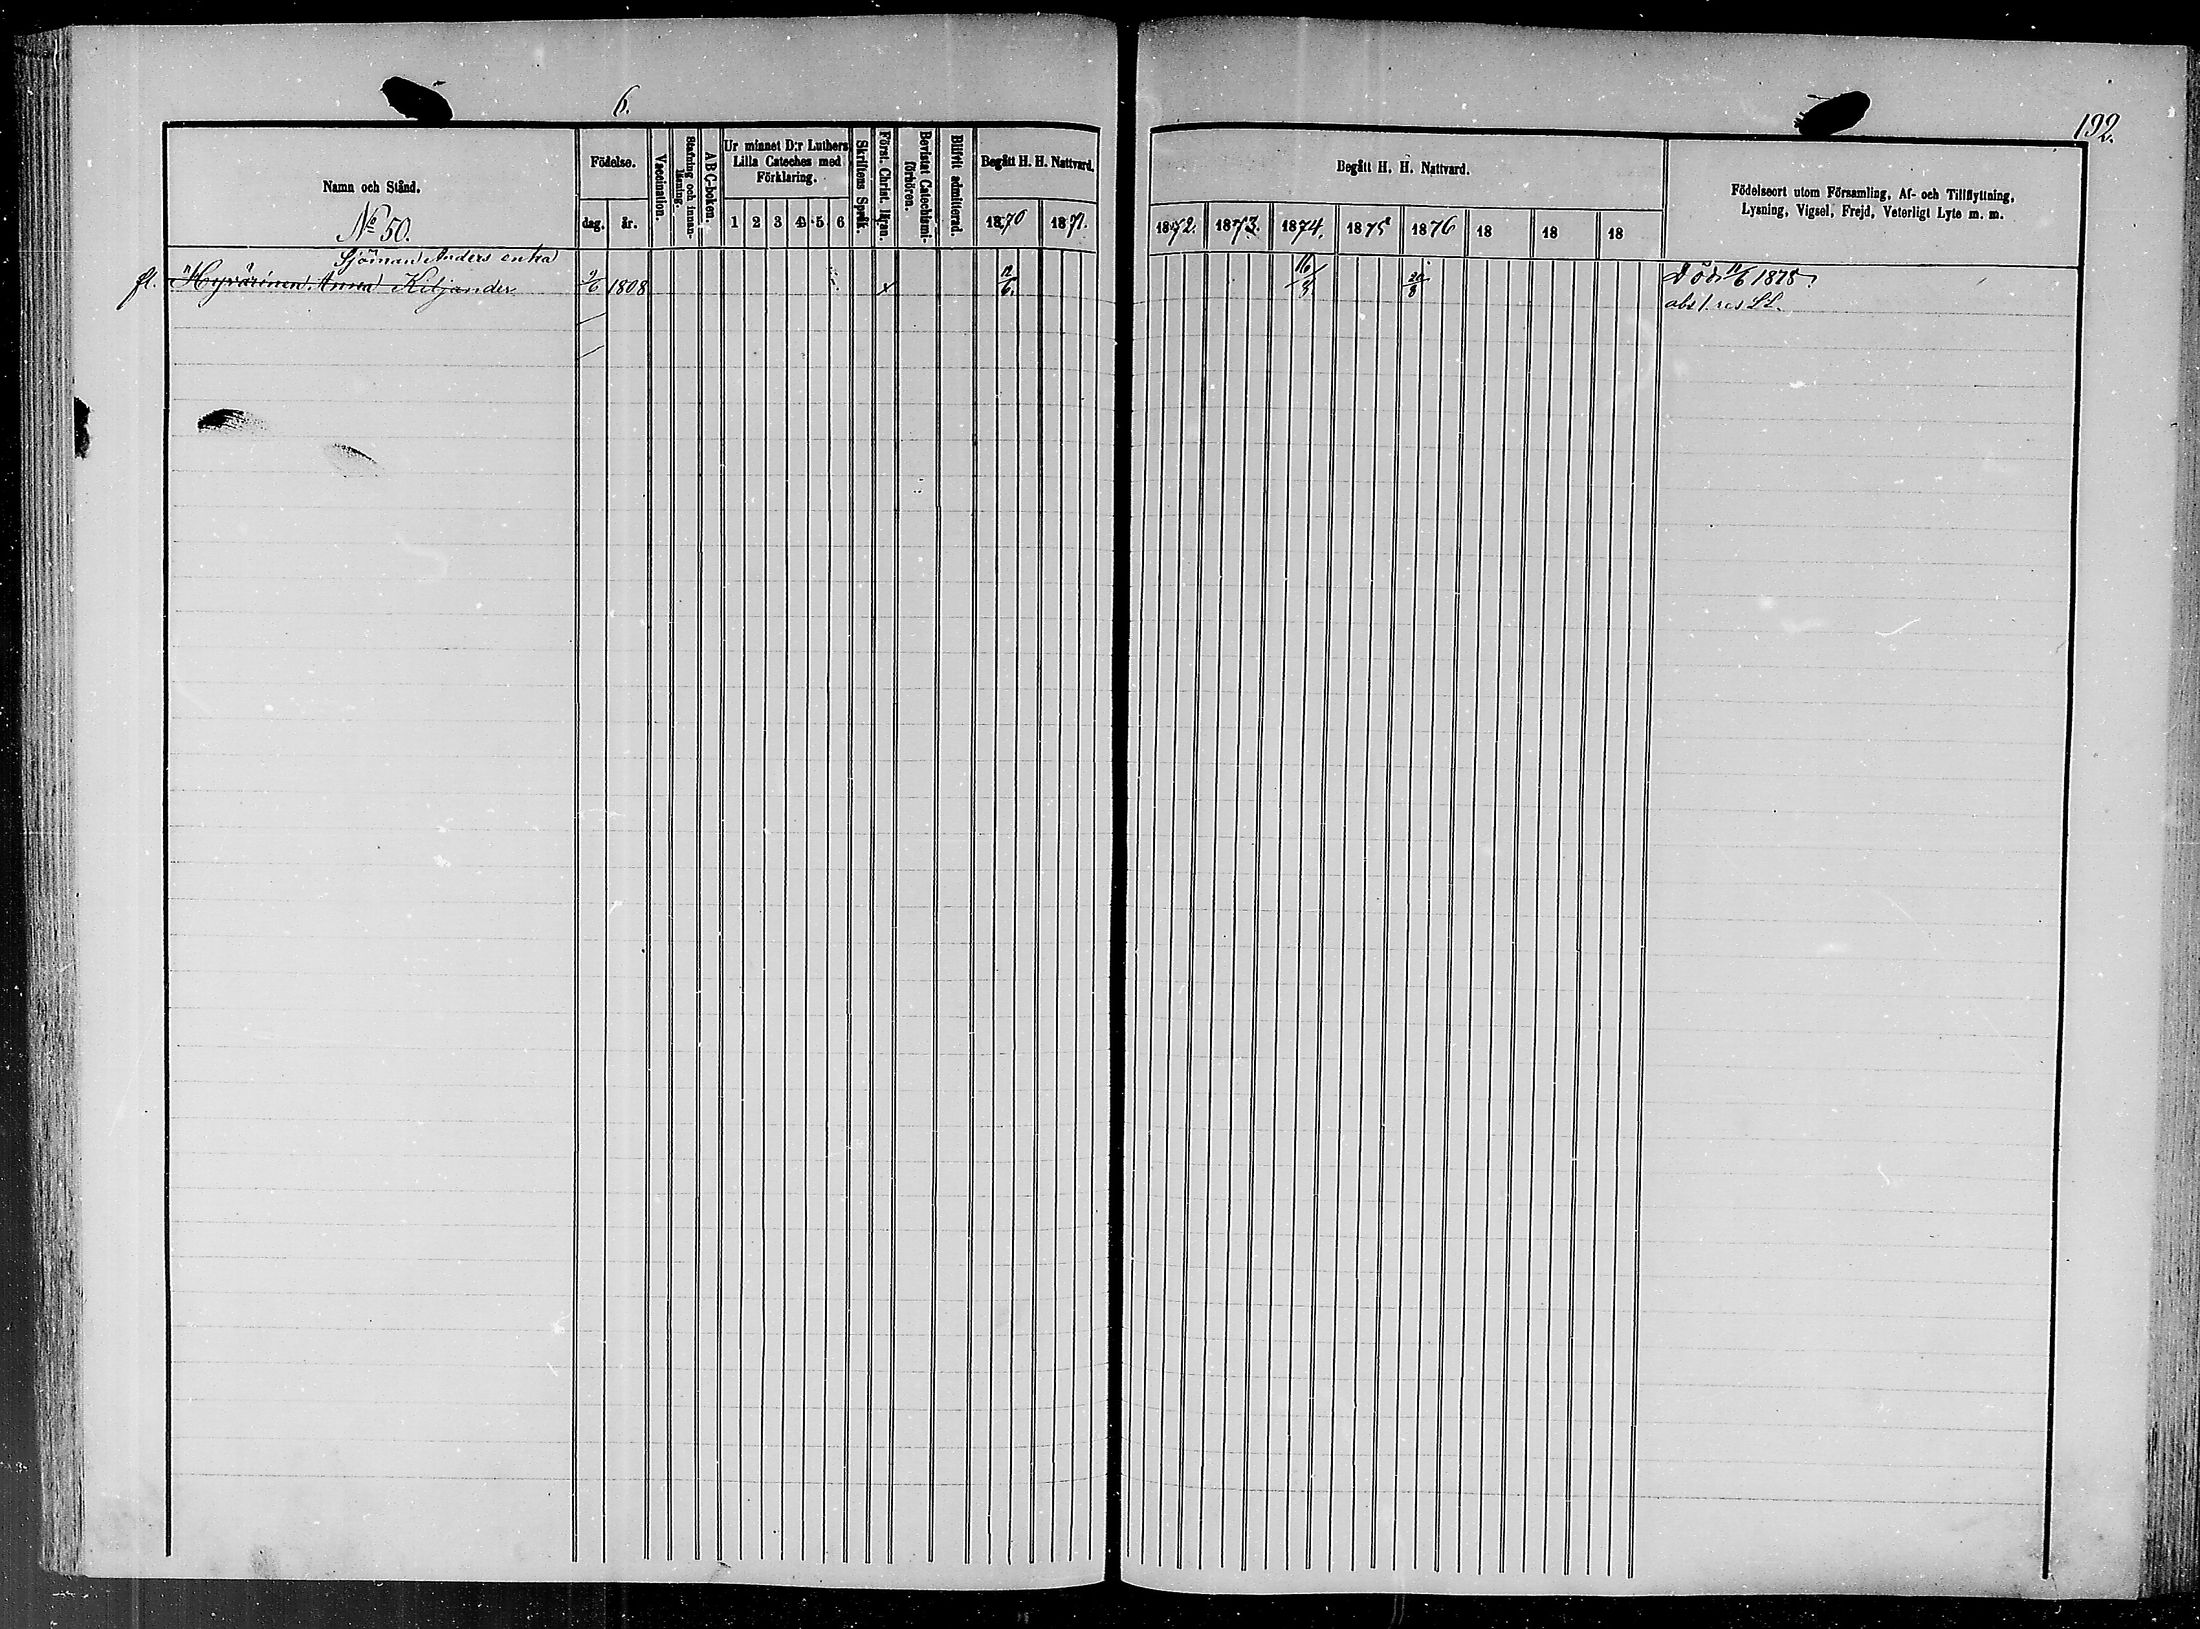 6.
192.
Namn och Stånd.
No 50.
Födelse.
dag.
år.
Vaccination.
Stafning och innan-
läsning.
ABC-boken.
Ur minnet D:r Luthers
Lilla Cateches med
Förklaring.
1 2 3 4 5 6
Skriftens Språk.
Först. Christ. läran.
Bevistat Catechismi-
förhören.
Blifvit admitterad.
Begått H. H. Nattvard.
1870 1871.
Begått H. H. Nattvard.
1872. 1873. 1874. 1875 1876 18 18 18
Födelseort utom Församling, Af- och Tillflyttning,
Lysning, Vigsel, Frejd, Veterligt Lyte m. m.
Sjöman Anders enka
fl. Hyvärinen, Anna Kiljander 2/6 1808 x 12/6. 16/8 20/8 Död 11/6 1878